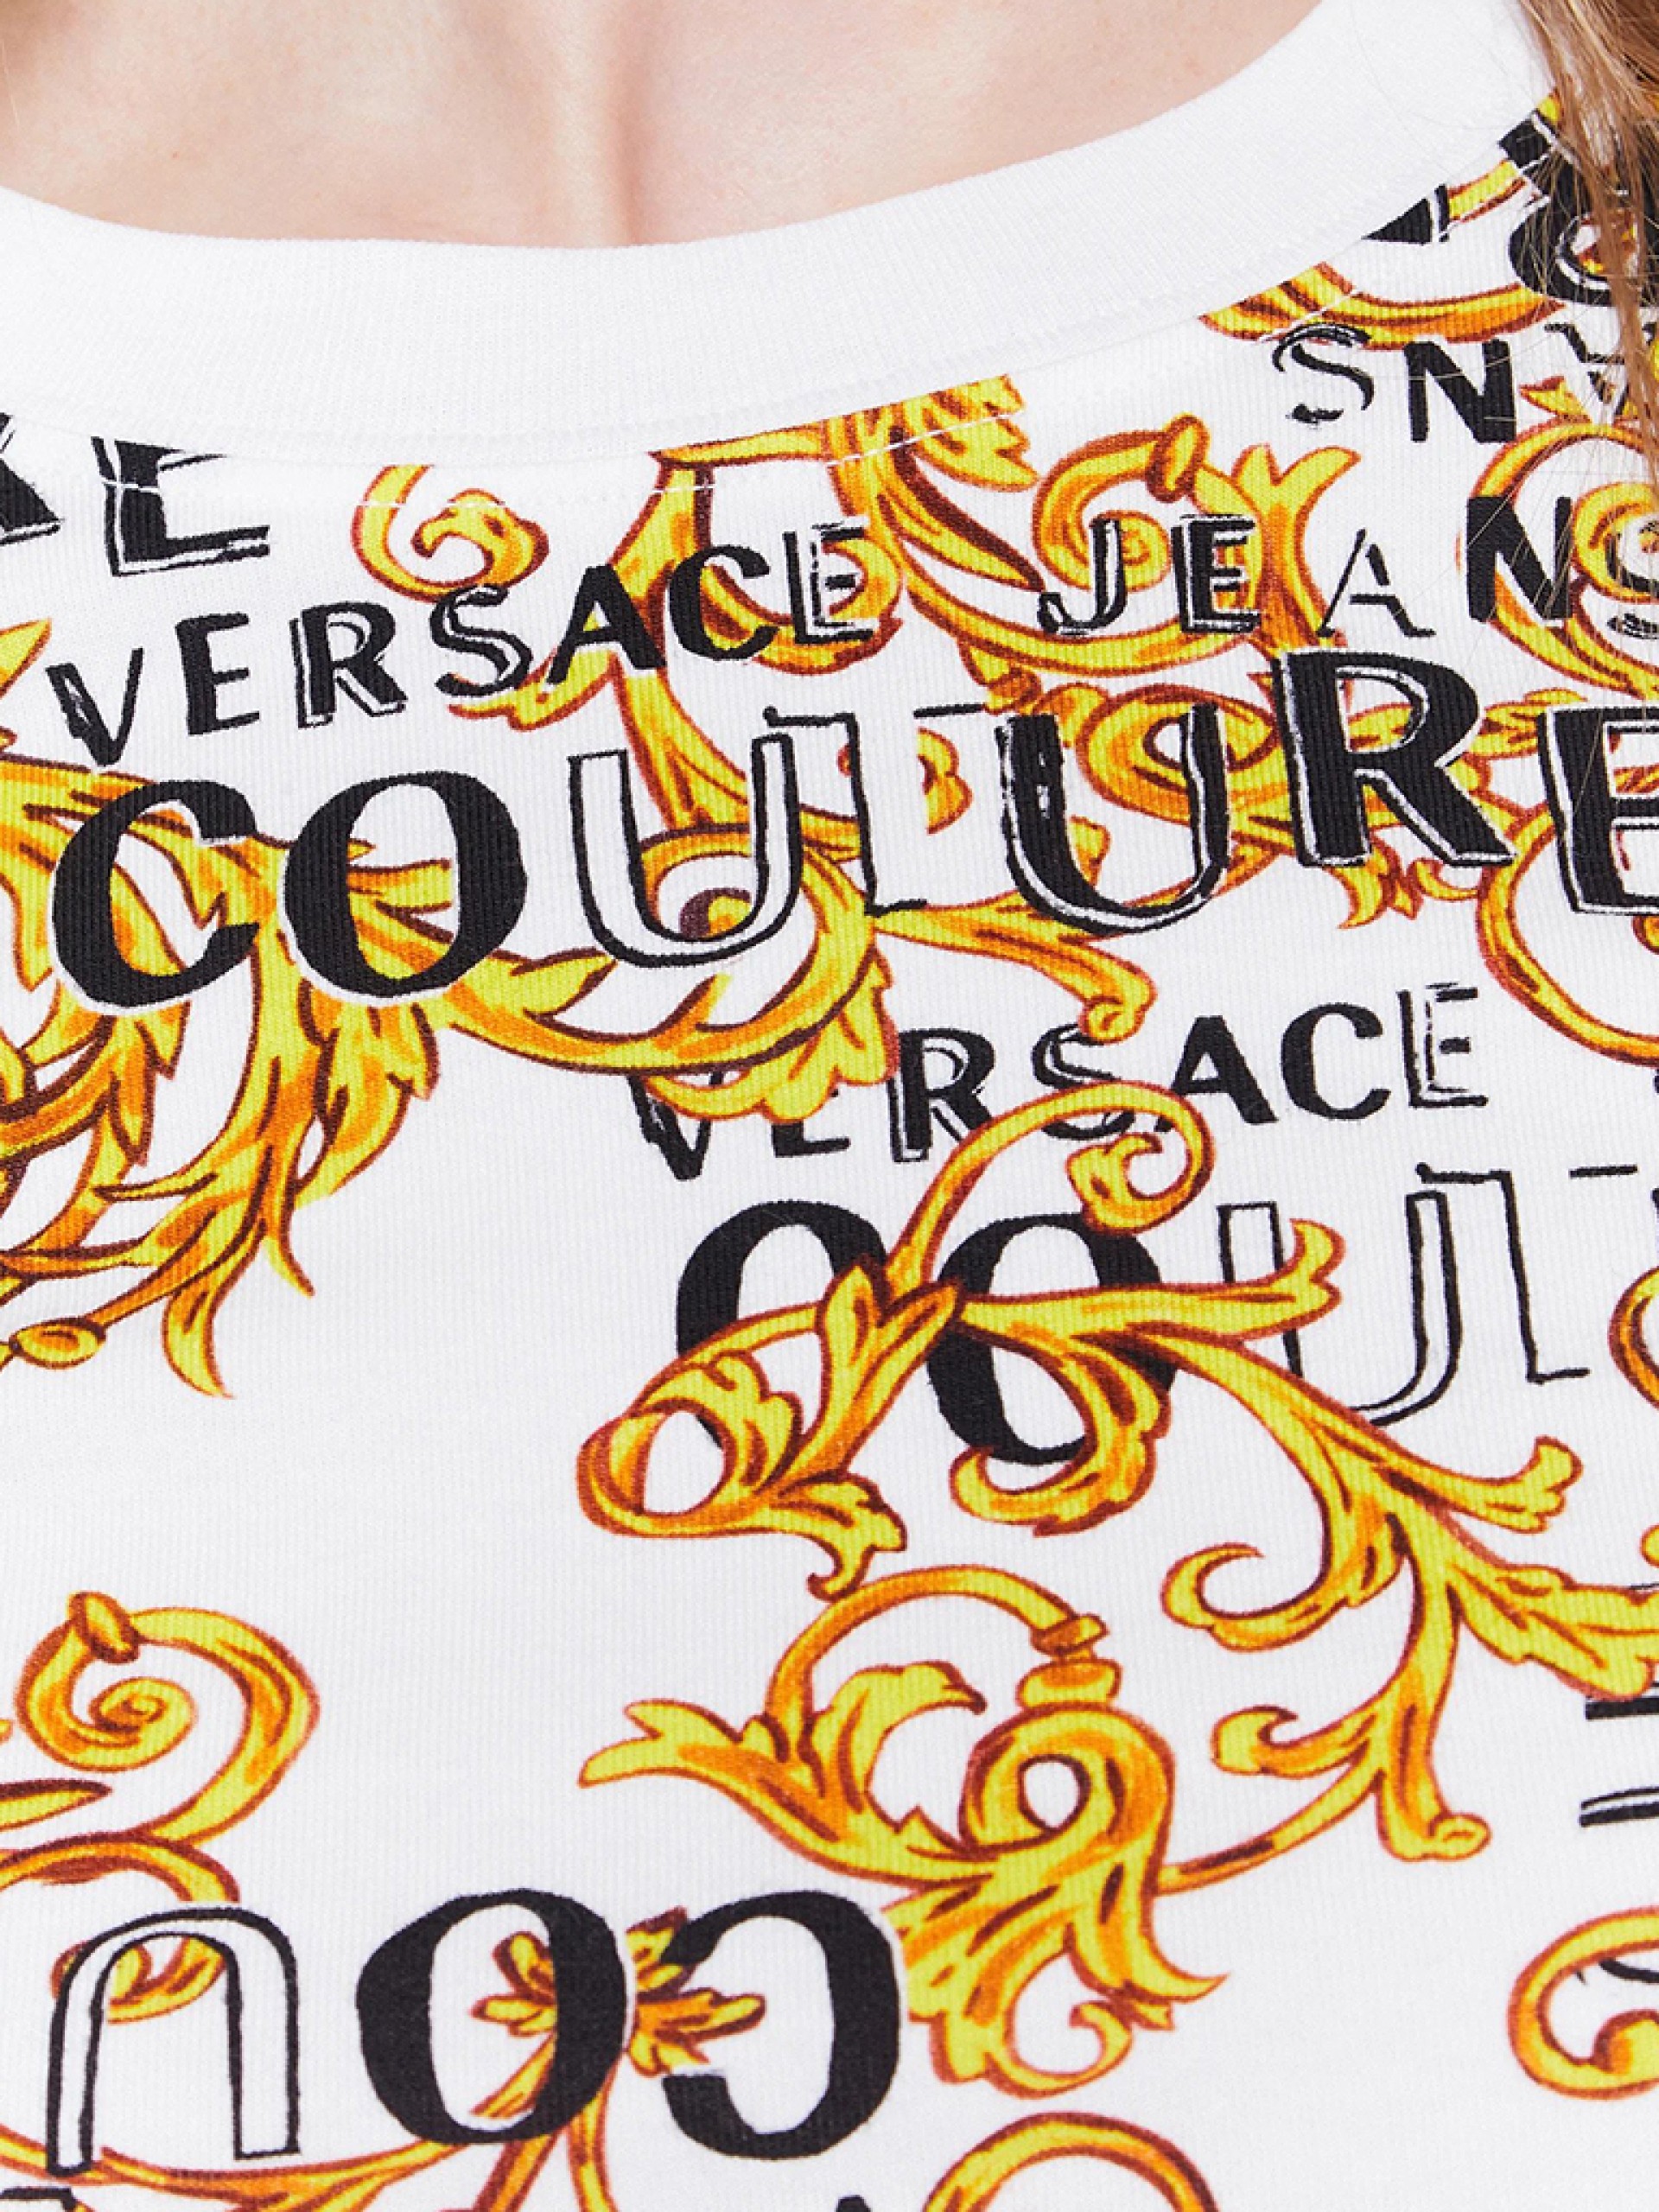 VERSACE JEANS
COUTURE
VERSACE
COUT
COU